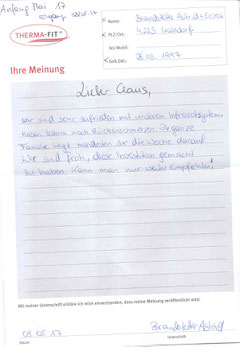 Anfang Mai 17
THERMA-FIT®
Name: Brandstätter Astrid + Erika
PLZ/Ort: 4223 Katsdorf
Tel./Mobil:
Geb.Dat.: 1997
Ihre Meinung
Lieber Claus,
wir sind sehr zufrieden mit unserem Infrarotsystem.
Kaum bzw. noch Rückenschmerzen. Ganze
Familie liegt mindestens 3x die Woche darauf
Wir sind froh, diese Investition gemacht
zu haben. Kann man nur weiter Empfehlen!
Mit meiner Unterschrift erkläre ich mich einverstanden, dass meine Meinung veröffentlicht wird.
05.05.17
Brandstätter Astrid
Datum
Unterschrift